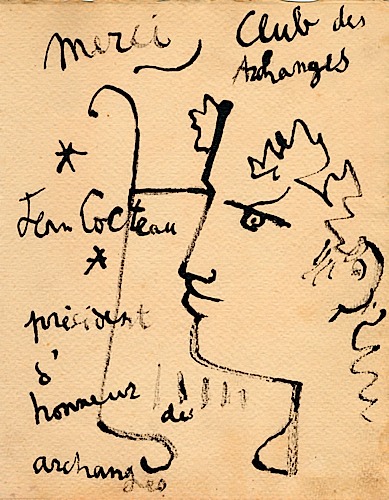 merci
Club des
Archanges
Jean Cocteau
président
d'
honneur des
archanges